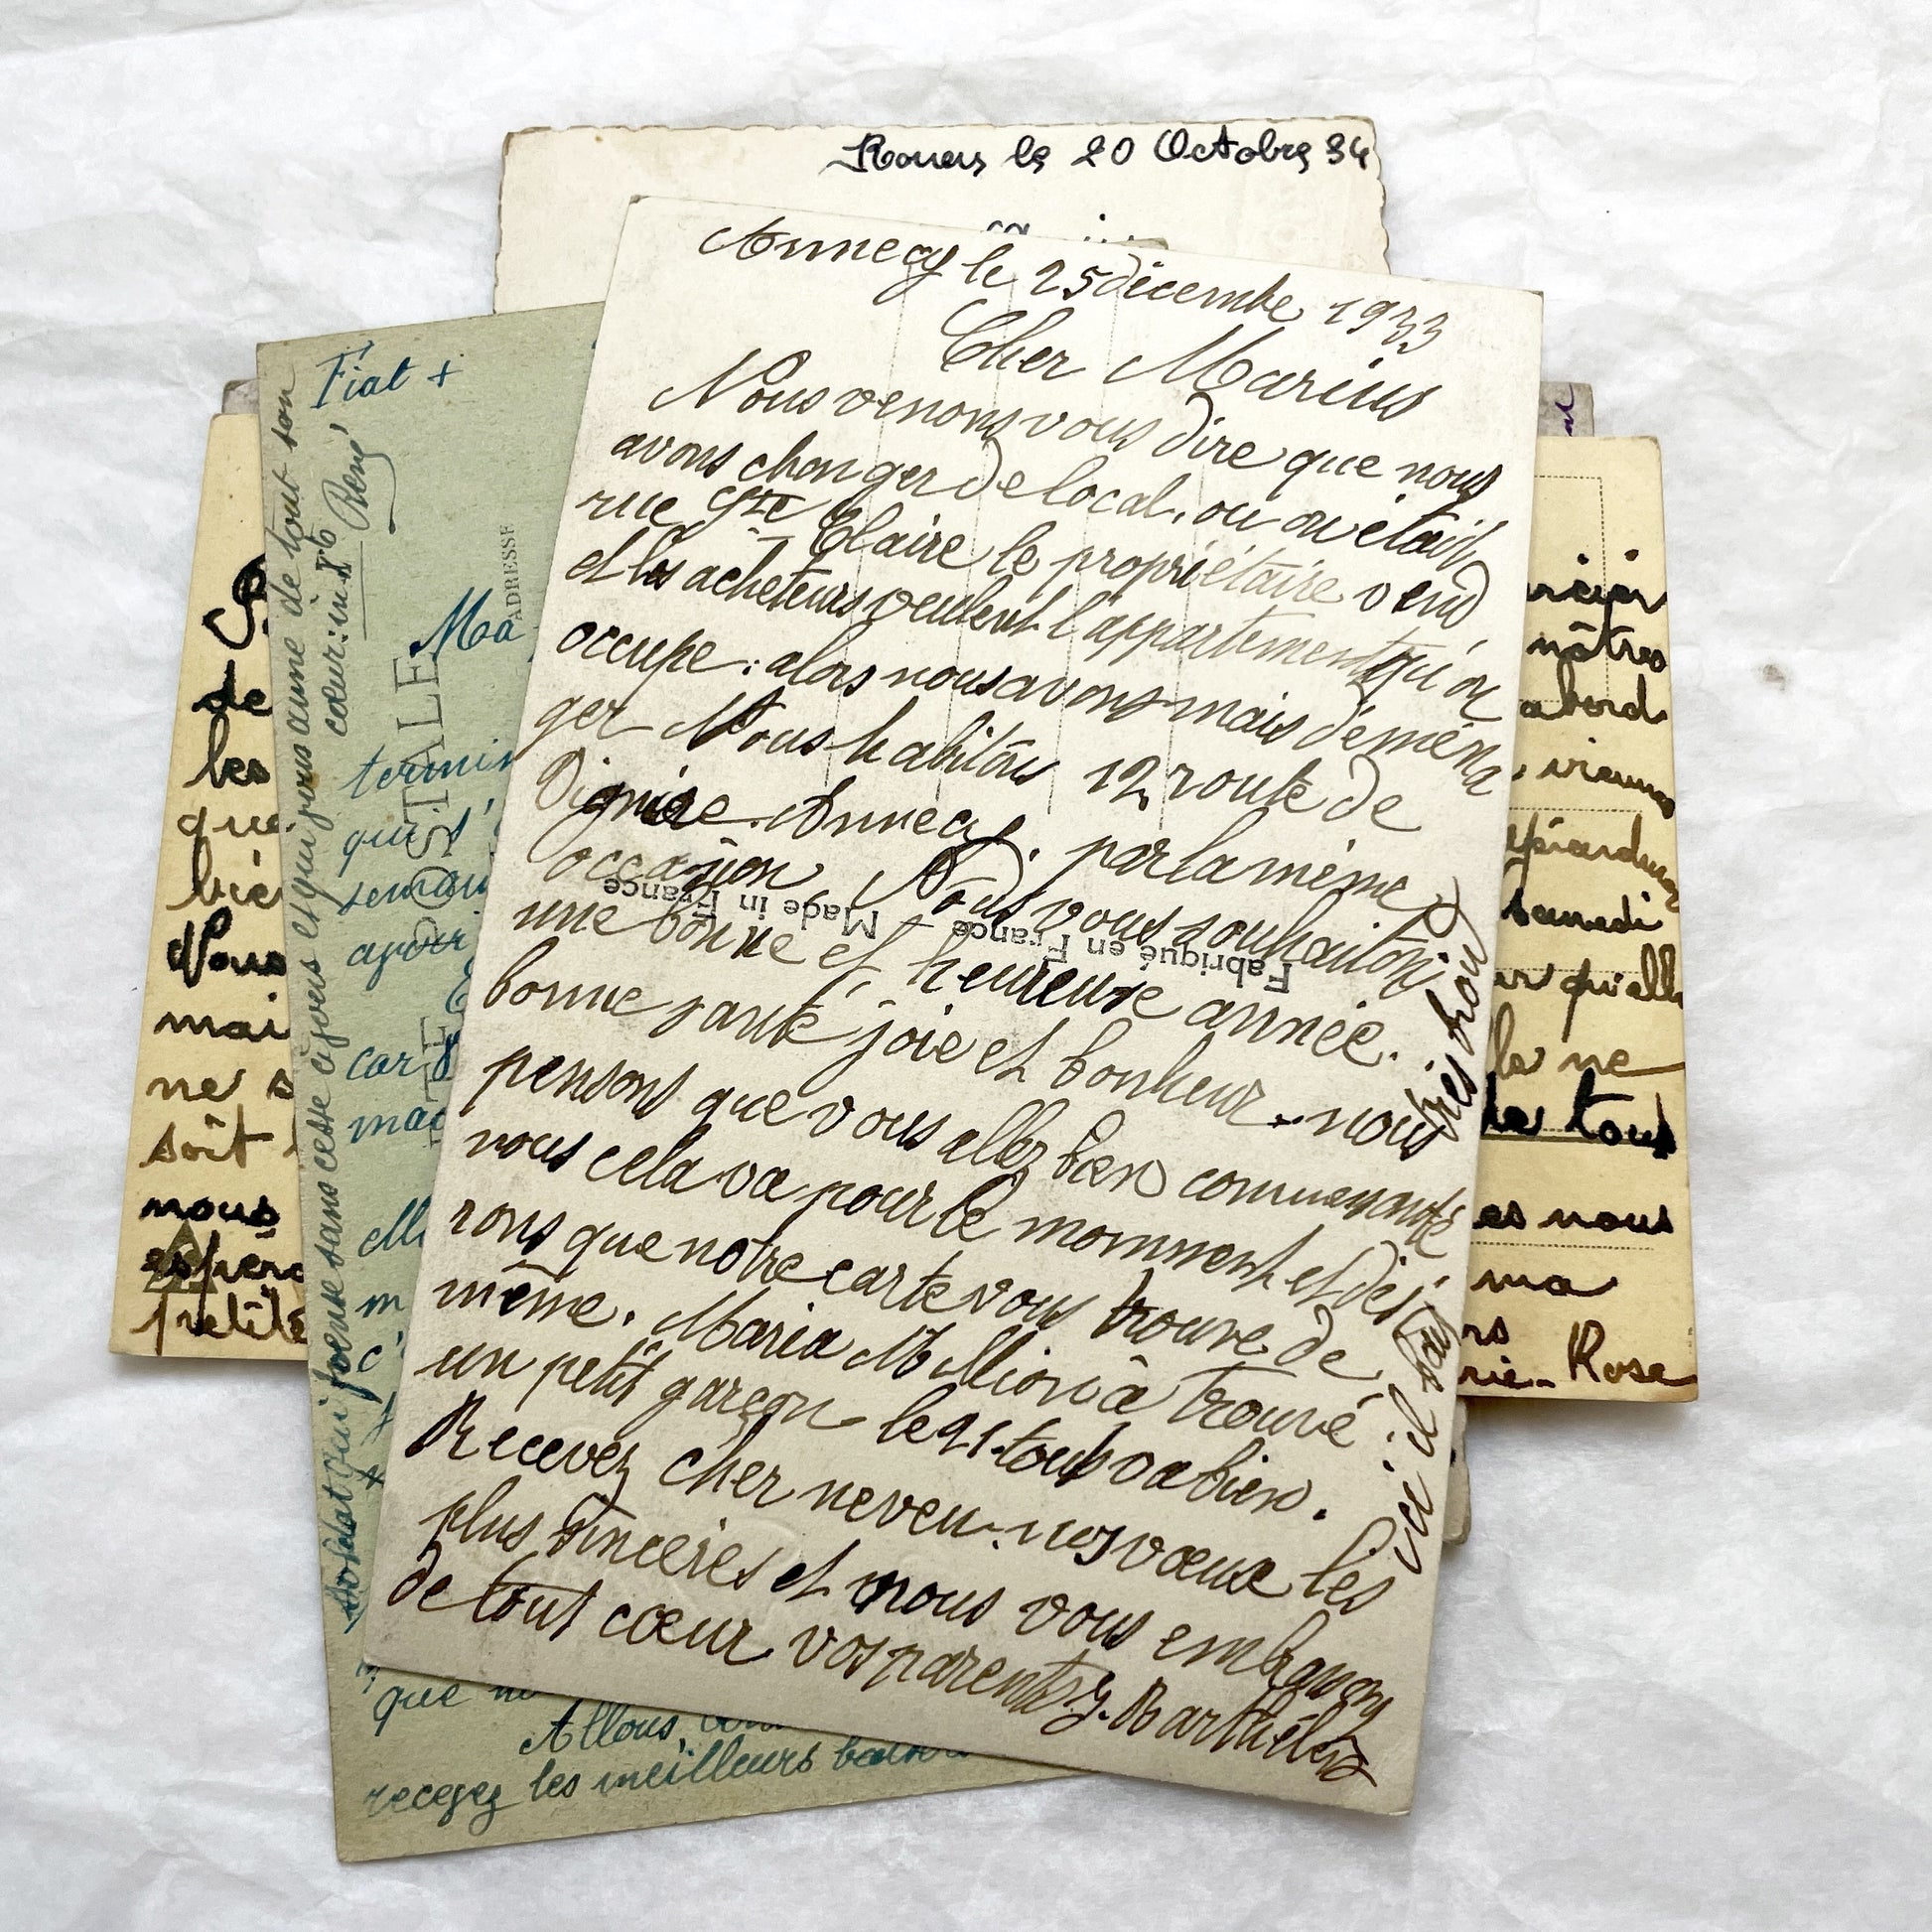 Rouen le 20 Octobre 34
Annecy le 25 décembre 1933
Cher Marius
Nous venons vous dire que nous
avons changer de local, ou on était,
rue Ste Claire le propriétaire vend
et les acheteurs veulent l'appartement qu'on
occupe : alors nous avons mais déména
ger Nous habitons 12 route de
Annecy. par la même
occasion Nous vous souhaitons
une bonne et heureuse année.
bonne santé joie et bonheur. nous
pensons que vous allez bien comme
nous cela va pour le momment et dési
rons que notre carte vous trouve de
même. Maria à trouvé
un petit garçon le 21. tout va bien.
Recevez cher neveu nos vœux les
plus sincères et nous vous embrassons
de tout cœur vos parents
ici il fait très froid
Fabriqué en France - Made in France
Fiat +
soldat qui pense sans cesse à vous et qui vous aime de tout son
cœur: in
René
ADRESSE
POSTALE
Ma
termin
qui s'
car
mac
m
c'
que
Allons,
recevez les meilleurs
de
les
que
bie
Nous
mai
ne s
soit
nous
espere
petite
nôtres
abord
Samedi
qu'elle
la ne
de tous
es nous
ma
rs
rie-Rose